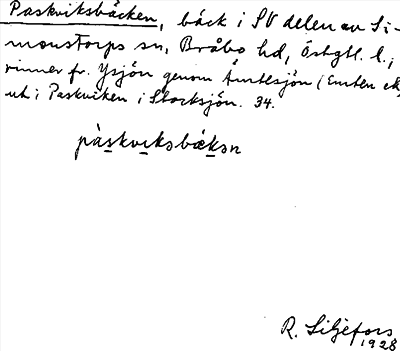 Paskviksbäcken, bäck i SV delen av Si-
monstorps sn, Bråbo hd, Östgtl. l.,
rinner fr. Ysjön genom Ämtesjön (Emten
ut i Paskviken i Storsjön. 34.
pàskviksbäkən
R. Liljefors
1928